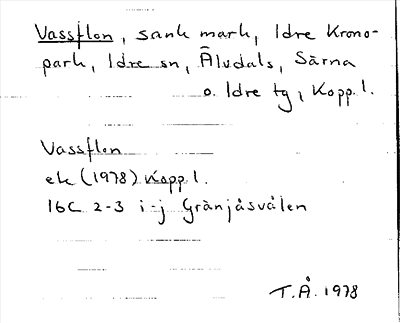 Vassflon, sank mark, Idre Krono-
park, Idre sn, Älvdals, Särna
o. Idre tg, Kopp. l.
Vassflon
ek (1978) Kopp l.
16C 2-3 i-j Gränjåsvålen
T.Å. 1978